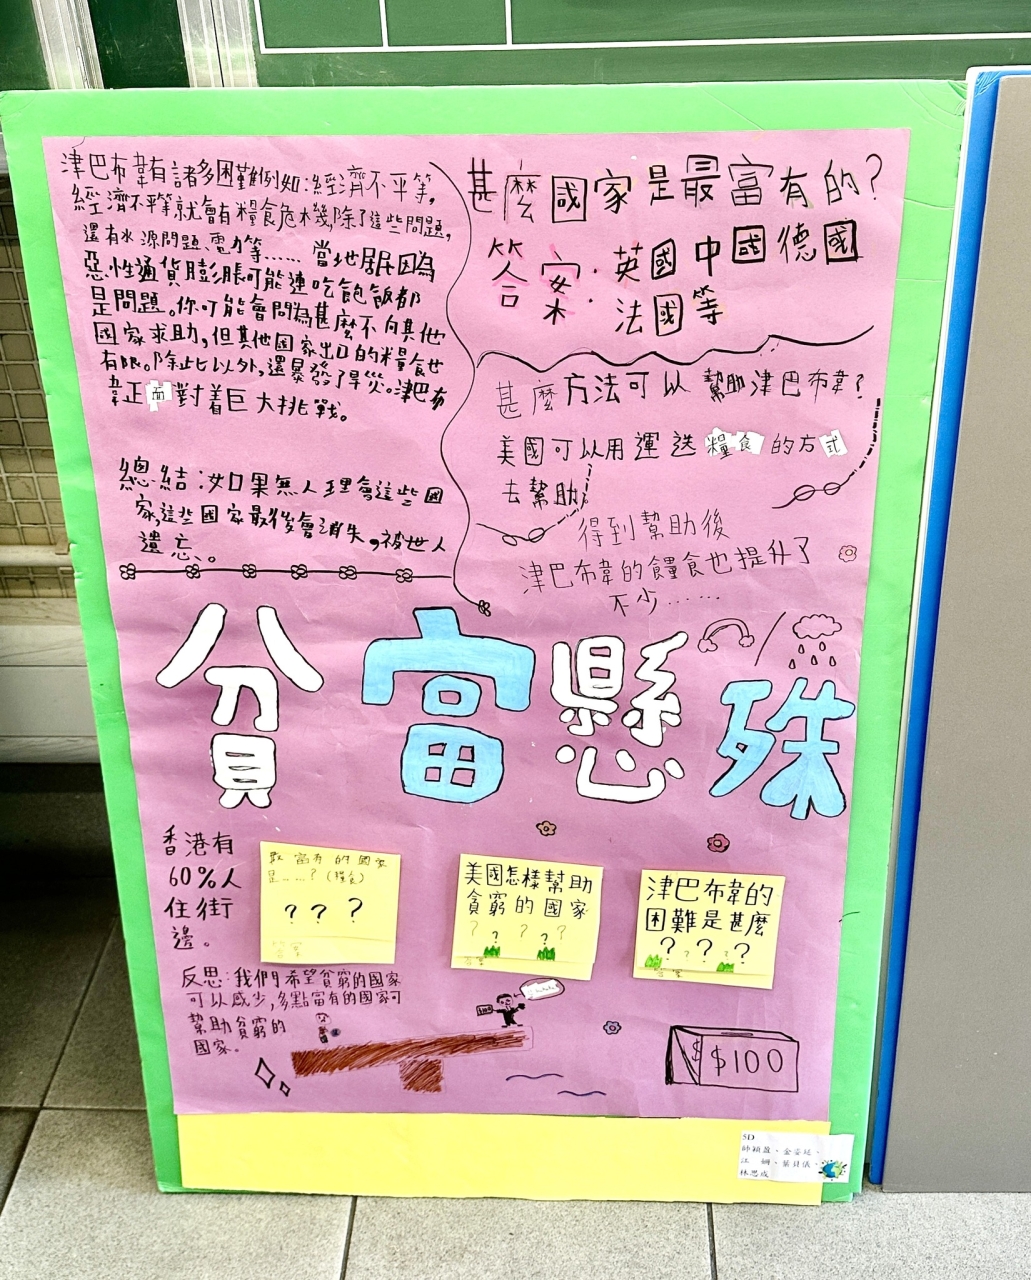 津巴布韋有諸多困難例如:經濟不平等,
經濟不平等就會有糧食危機,除了這些問題,
還有水源問題、電力等……當地居民因為
惡性通貨膨脹可能連吃飽飯都
是問題。你可能會問為甚麼不向其他
國家求助,但其他國家出口的糧食也
有限。除此以外,還暴發了旱災。津巴布
韋正面對着巨大挑戰。
總結:如果無人理會這些國
家,這些國家最後會消失,被世人
遺忘、。
甚麼國家是最富有的?
答案:英國中國德國
法國等
甚麼方法可以幫助津巴布韋?
美國可以用運送糧食的方式
去幫助。
得到幫助後
津巴布韋的糧食也提升了
不少……
貧富懸殊
香港有
60%人
住街
邊。
富有的國家
是……?(糧食)
? ? ?
美國怎樣幫助
貧窮的國家
? ? ? ? ?
津巴布韋的
困難是甚麼
? ? ? ? ?
反思:我們希望貧窮的國家
可以減少,多點富有的國家可
幫助貧窮的
國家。
$100
$ $100
5D
帥穎盈、金姿延、
江 姍、葉貝儀、
林思成